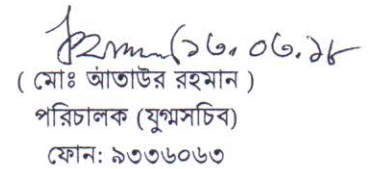 ১৩.০৩.১৮
( মোঃ আতাউর রহমান )
পরিচালক (যুগ্মসচিব)
ফোন: ৯৩৩৬০৬৩